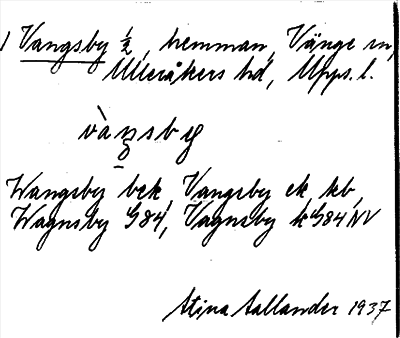 1 Vangsby ½, hemman, Vänge sn,
Ulleråkers hd, Upps. l.
vàŋsby
Wangsby bek, Vangsby ek, kb,
Wagnsby G84, Vagnsby k G84 NV
Stina Sallander 1937